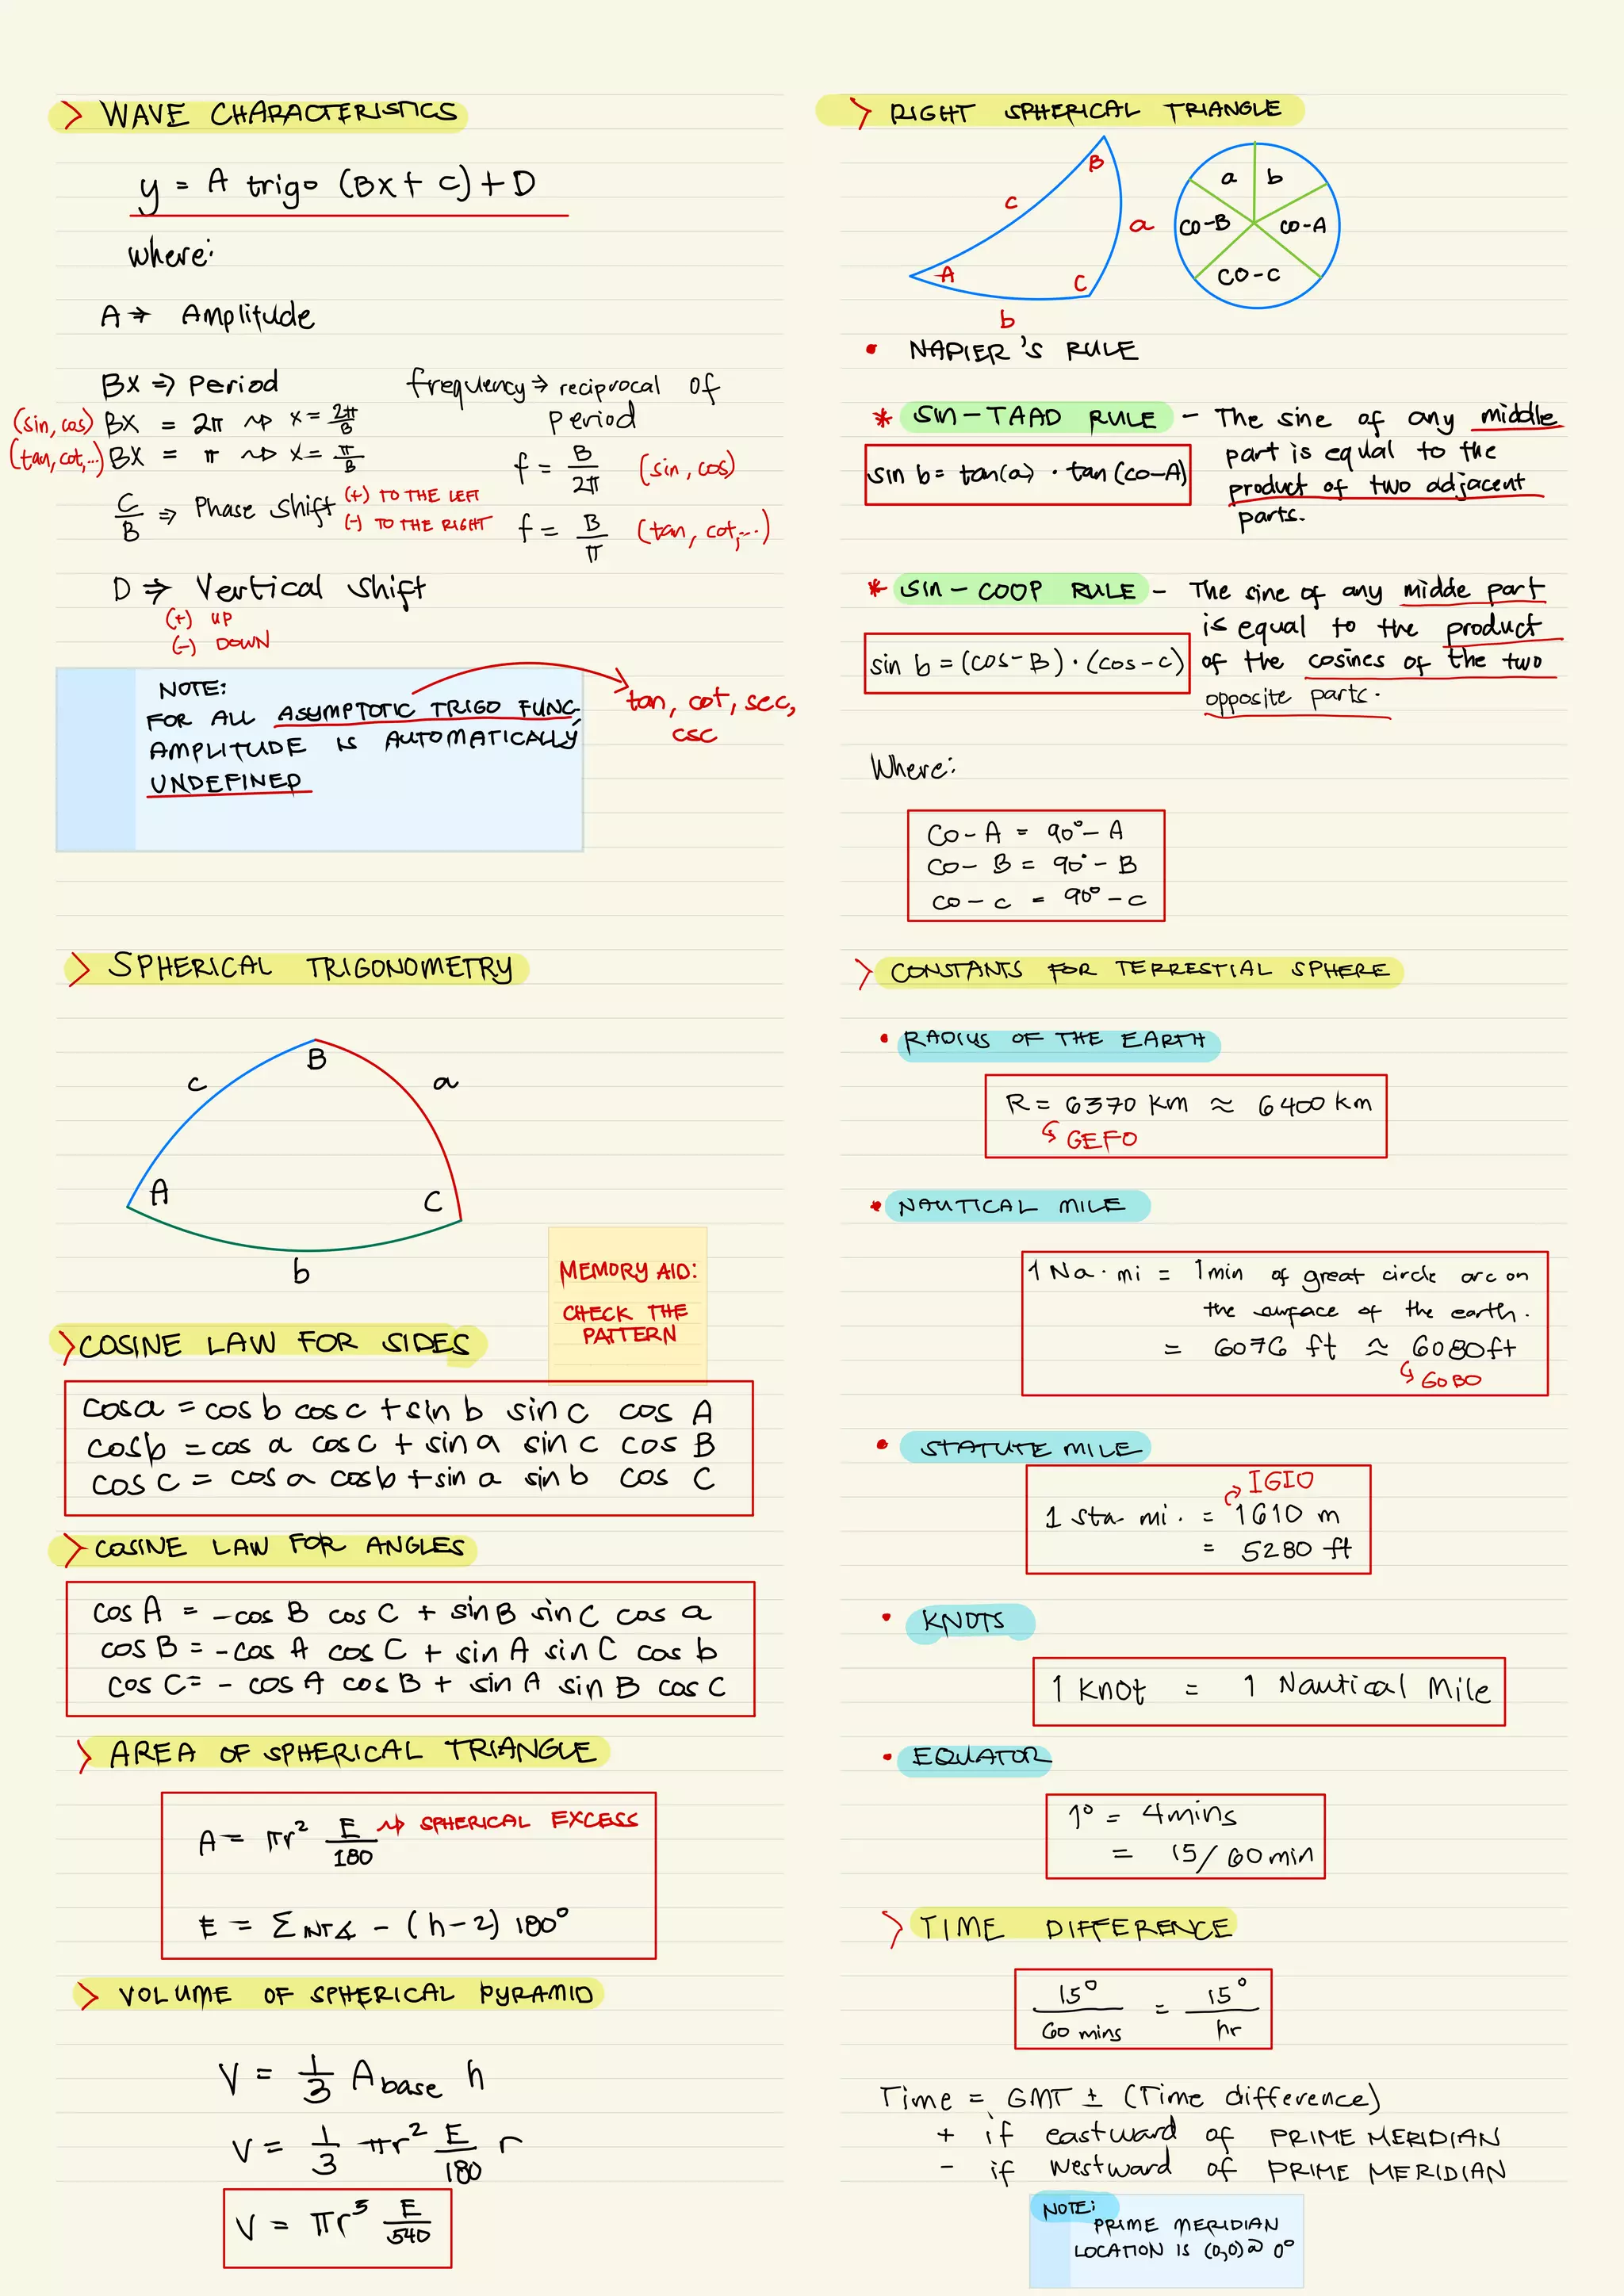 > WAVE CHARACTERISTICS
y = A trigo (Bx + C) + D
where:
A → Amplitude
BX ⇒ Period
(sin, cos) BX = 2π ⇝ x = 2π/B
(tan, cot,...) BX = π ⇝ x = π/B
frequency ⇒ reciprocal of
period
f = B/2π (sin, cos)
f = B/π (tan, cot,...)
C/B ⇒ Phase Shift (+) TO THE LEFT
(-) TO THE RIGHT
D ⇒ Vertical Shift
(+) UP
(-) DOWN
NOTE:
FOR ALL ASYMPTOTIC TRIGO FUNC,
AMPLITUDE IS AUTOMATICALLY
UNDEFINED
tan, cot, sec,
csc
> SPHERICAL TRIGONOMETRY
B
c
a
A
C
b
MEMORY AID:
CHECK THE
PATTERN
> COSINE LAW FOR SIDES
cos a = cos b cos c + sin b sin c cos A
cos b = cos a cos c + sin a sin c cos B
cos C = cos a cos b + sin a sin b cos C
> COSINE LAW FOR ANGLES
cos A = -cos B cos C + sin B sin C cos a
cos B = -cos A cos C + sin A sin C cos b
cos C = - cos A cos B + sin A sin B cos C
> AREA OF SPHERICAL TRIANGLE
A = πr² E/180 ⇝ SPHERICAL EXCESS
E = Σ INT∡ - (h-2) 180°
> VOLUME OF SPHERICAL PYRAMID
V = 1/3 Abase h
V = 1/3 πr² E/180 r
V = πr³ E/540
> RIGHT SPHERICAL TRIANGLE
B
c
a
A
C
b
a b
co-B co-A
co-c
• NAPIER'S RULE
* sin-TAAD RULE - The sine of any middle
part is equal to the
product of two adjacent
parts.
sin b = tan(a) · tan (co-A)
* sin-COOP RULE - The sine of any midde part
is equal to the product
of the cosines of the two
opposite parts.
sin b = (cos-B) · (cos-c)
Where:
Co-A = 90°- A
co- B = 90° - B
co-c = 90° - c
> CONSTANTS FOR TERRESTIAL SPHERE
• RADIUS OF THE EARTH
R = 6370 km ≈ 6400 km
GEFO
• NAUTICAL MILE
1 Na. mi = 1 min of great circle arc on
the surface of the earth.
= 6076 ft ≈ 6080 ft
GOBO
• STATUTE MILE
IGIO
1 sta mi. = 1610 m
= 5280 ft
• KNOTS
1 Knot = 1 Nautical Mile
• EQUATOR
1° = 4 mins
= 15/60 min
> TIME DIFFERENCE
15°/60 mins = 15°/hr
Time = GMT ± (Time difference)
+ if eastward of PRIME MERIDIAN
- if westward of PRIME MERIDIAN
NOTE:
PRIME MERIDIAN
LOCATION IS (0,0) @ 0°